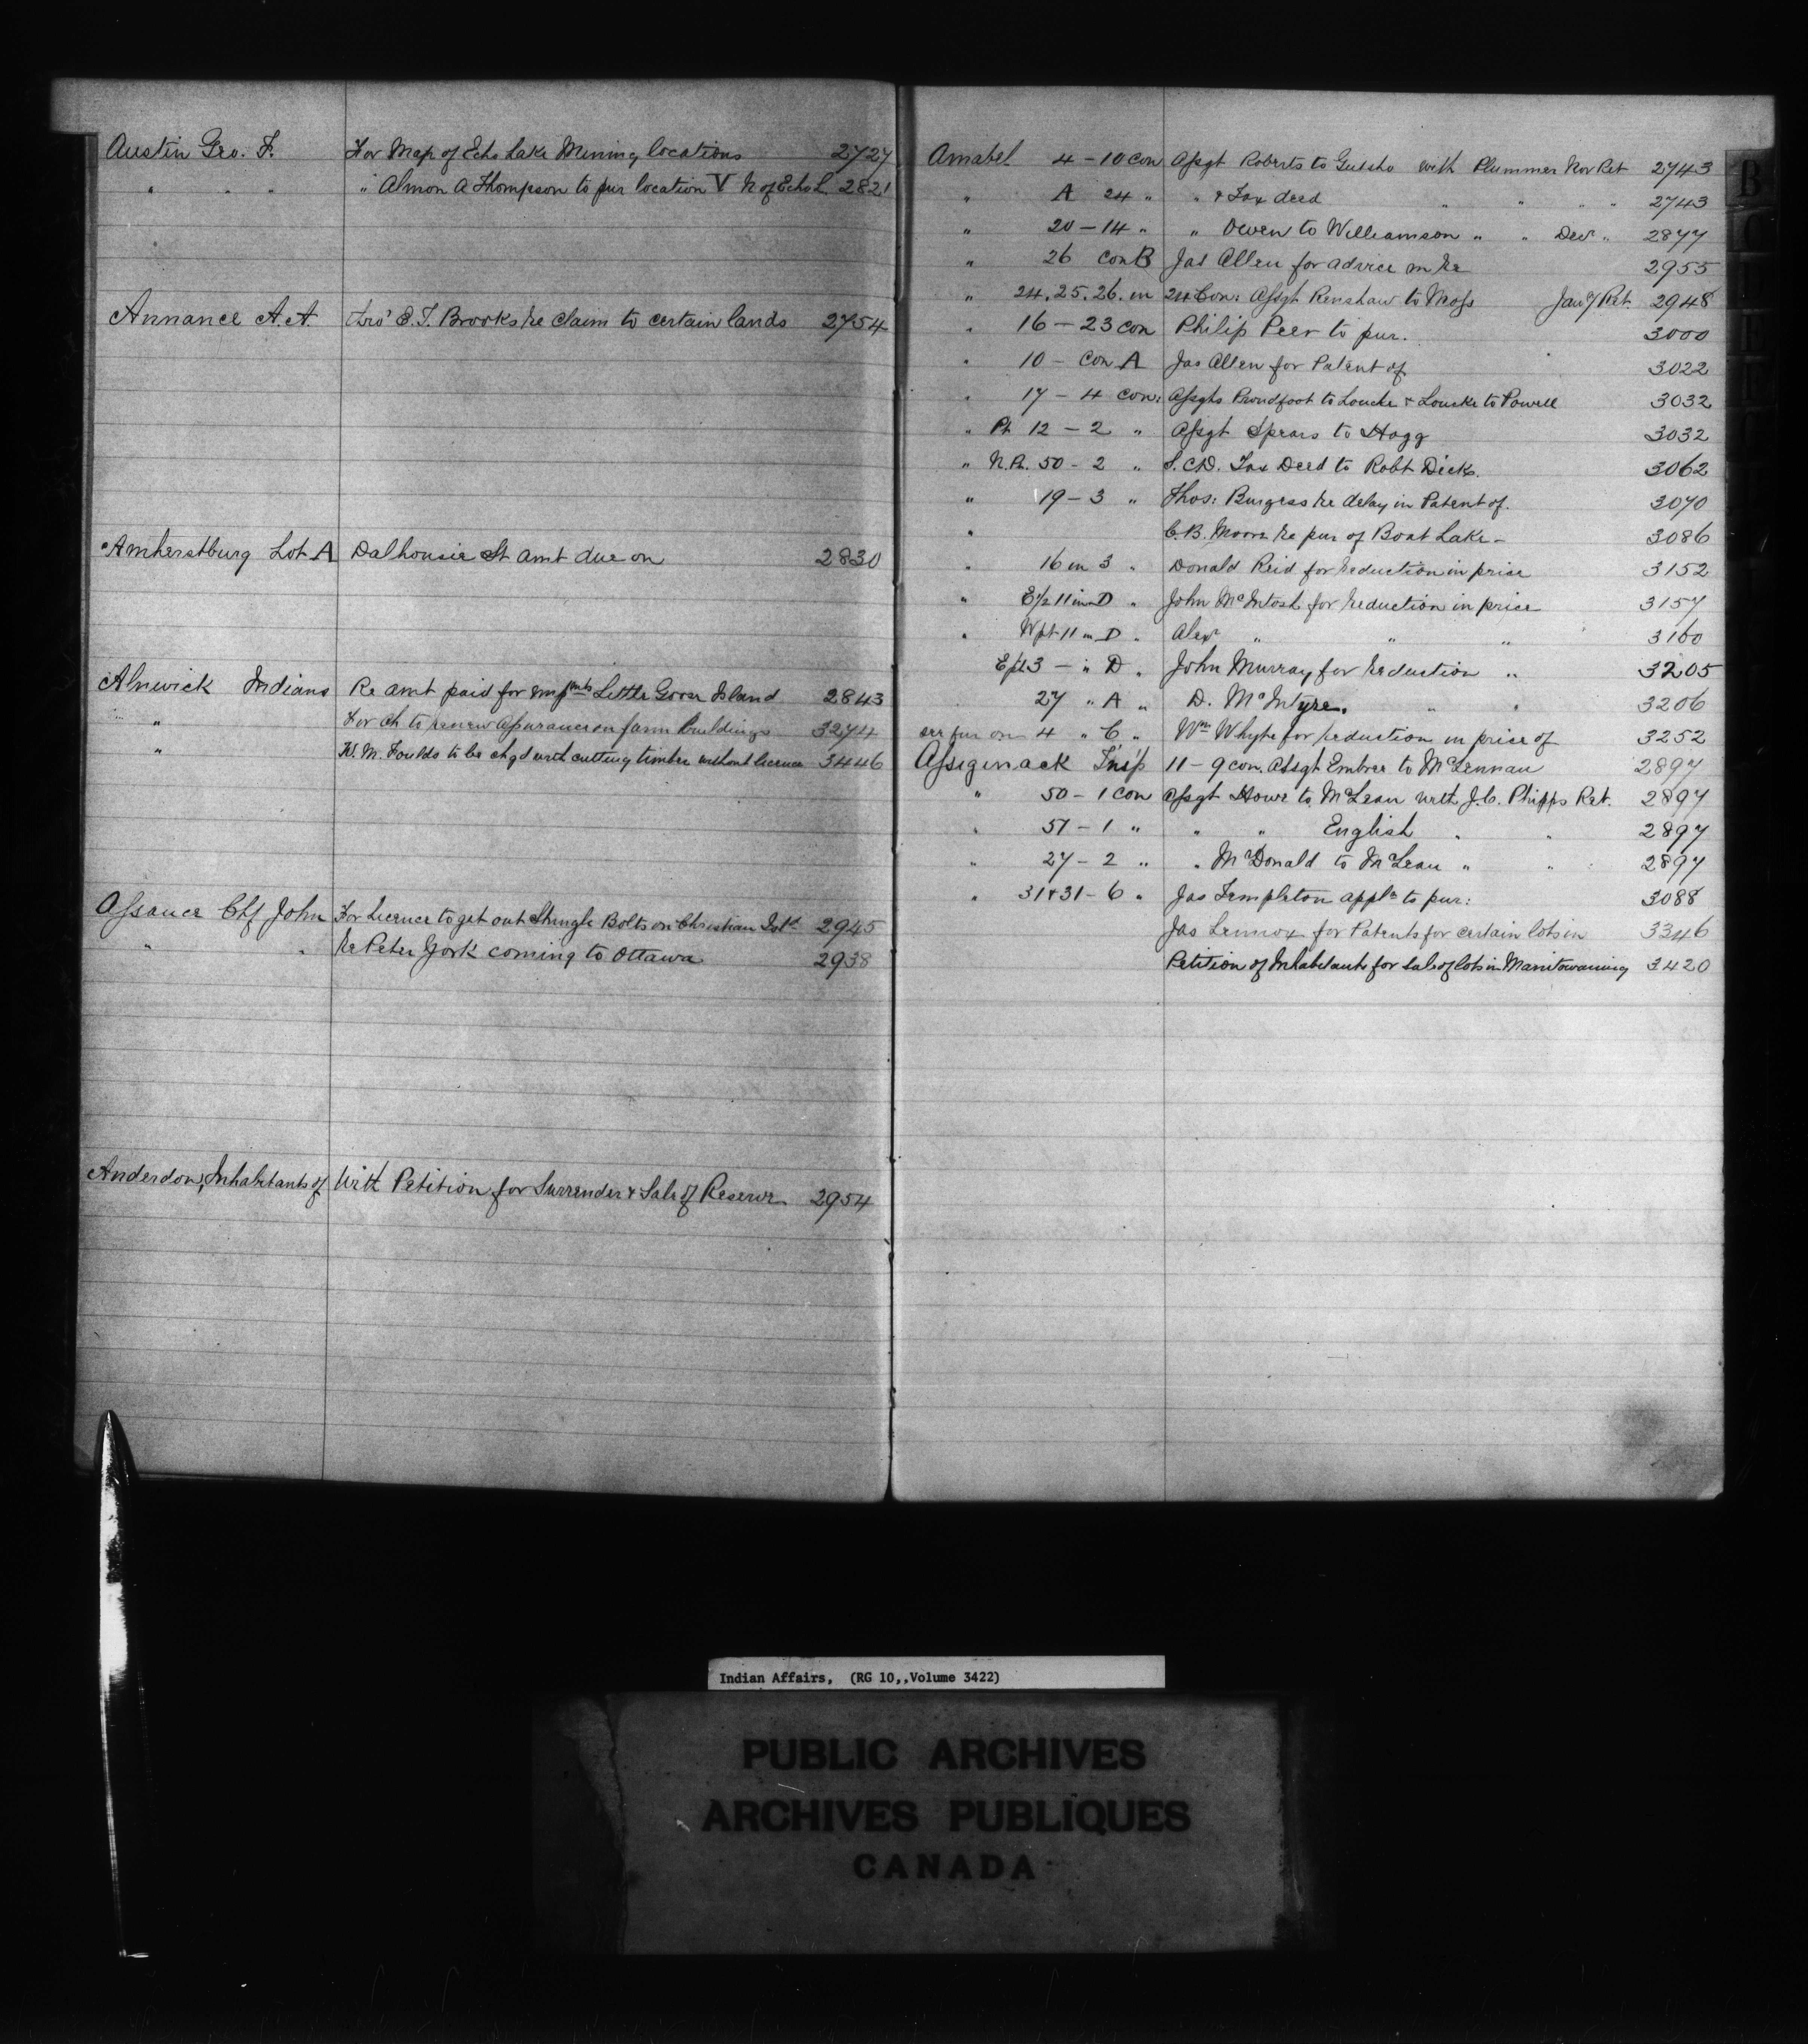 Austin Geo. F. For Map of Echo Lake Mining locations 2727
" " " " Almon A Thompson to pur location V N of Echo L 2821
Annance A. A. thro' E. T. Brooks re claim to certain lands 2754
Amherstburg Lot A Dalhousie St amt due on 2830
Alnwick Indians Re amt paid for impmts Little Goose Island 2843
" For ch to renew assurance on farm buildings 3274
" W. M. Foulds to be chgd with cutting timber without licence 3446
Assance Chf John For Licence to get out Shingle Bolts on Christian Isld 2945
" " Re Peter York coming to Ottawa 2938
Anderdon, Inhabitants of With Petition for Surrender & Sale of Reserve 2954
Amabel 4 - 10 con Assgt Roberts to with Plummer Nov Ret 2743
" A 24 " " & Tax deed " " " " 2743
" 20 - 14 " " Owen to Williamson " " Decr " 2877
" 26 con B Jas Allen for advice in re 2955
" 24. 25. 26. in 24 Con: Assgt Renshaw to Moss Jany Ret. 2948
" 16 - 23 con Philip Peer to pur. 3000
" 10 - con A Jas Allen for Patent of 3022
" 17 - 4 con: Assgts Proudfoot to Loucke & Loucke to Powell 3032
" Pt 12 - 2 " Assgt Spears to Hogg 3032
" N. Pt. 50 - 2 " S. C. D. Tax Deed to Robt Dick. 3062
" 19 - 3 " Thos: Burgess re delay in Patent of. 3070
" C. B. Moore re pur of Boat Lake - 3086
" 16 in 3 " Donald Reid for reduction in price 3152
" E 1/2 11 in D " John McIntosh for reduction in price 3157
" W pt 11 in D " Alexr " " " 3160
E pt 3 - " D " John Murray for reduction " 3205
27 " A " D. McIntyre. " " 3206
see fur on 4 " C " Wm Whyte for reduction in price of 3252
Assiginack Tnsp 11 - 9 con. Assgt Embree to McLennan 2897
" 50 - 1 con Assgt Howe to McLean with J. C. Phipps Ret. 2897
" 51 - 1 " " " English " " 2897
" 27 - 2 " " McDonald to McLean " " 2897
" 31 & 31 - 6 " Jas Templeton appln to pur: 3088
Jas Lennox for Patents for certain lots in 3346
Petition of Inhabitants for sale of lots in Manitowaning 3420
B
C
Indian Affairs, (RG 10,,Volume 3422)
PUBLIC ARCHIVES
ARCHIVES PUBLIQUES
CANADA